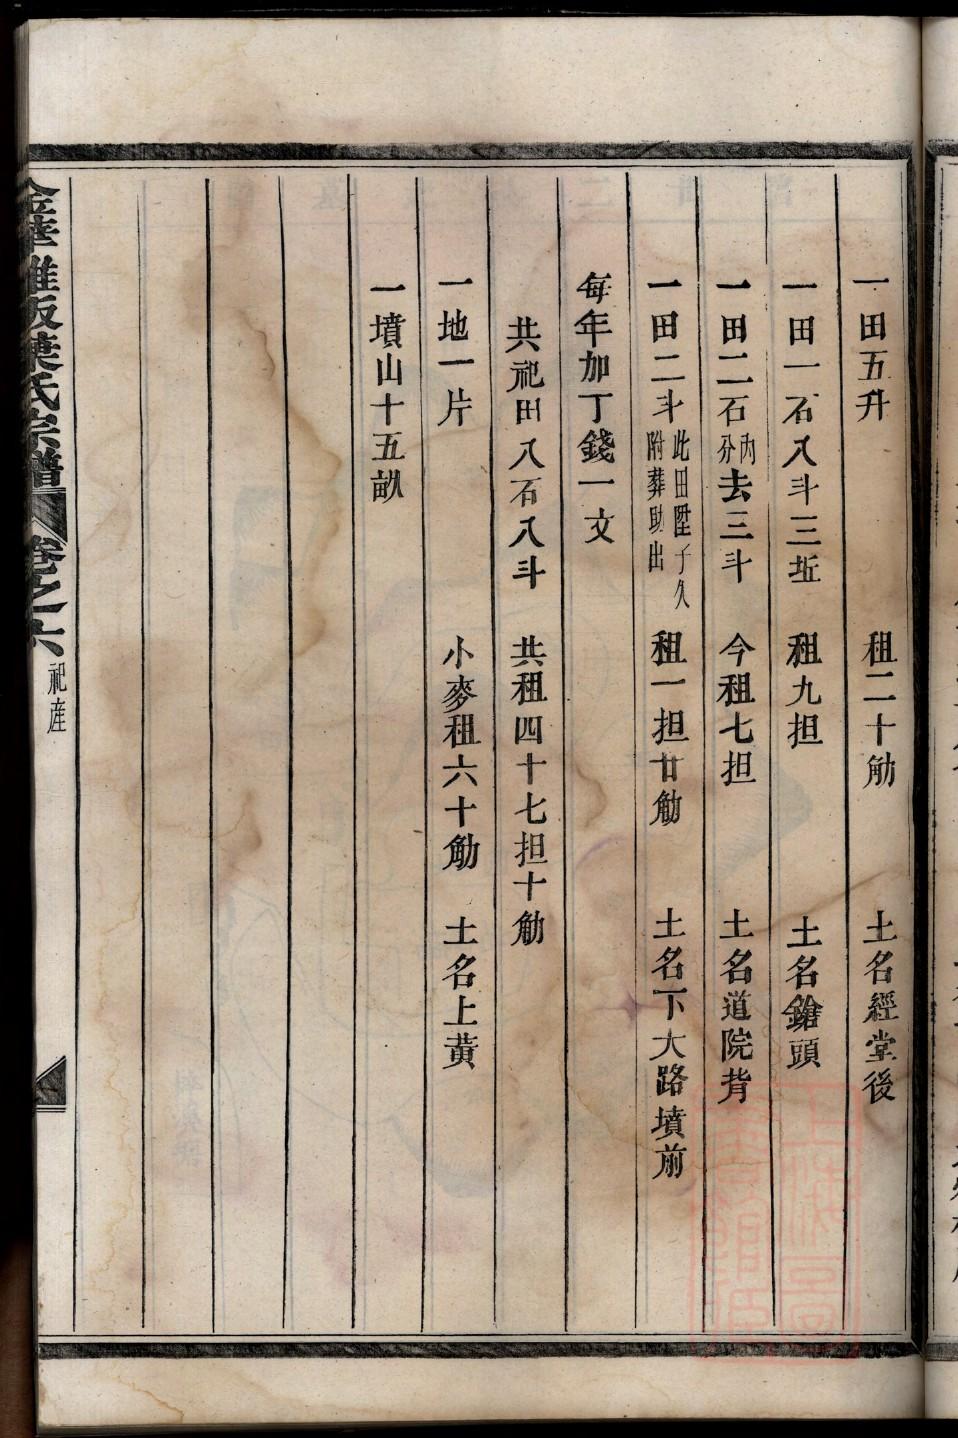 一田五升 租二十觔 土名經堂後
一田一石八斗三坵 租九担 土名鎗頭
一田二石內分去三斗 今租七担 土名道院背
一田二斗此田陞子久附葬助出 租一担廿觔 土名下大路墳前
每年加丁錢一文
共祀田八石八斗 共租四十七担十觔
一地一片 小麥租六十觔 土名上黃
一墳山十五畝
金華雅畈葉氏宗譜 卷之六 祀產